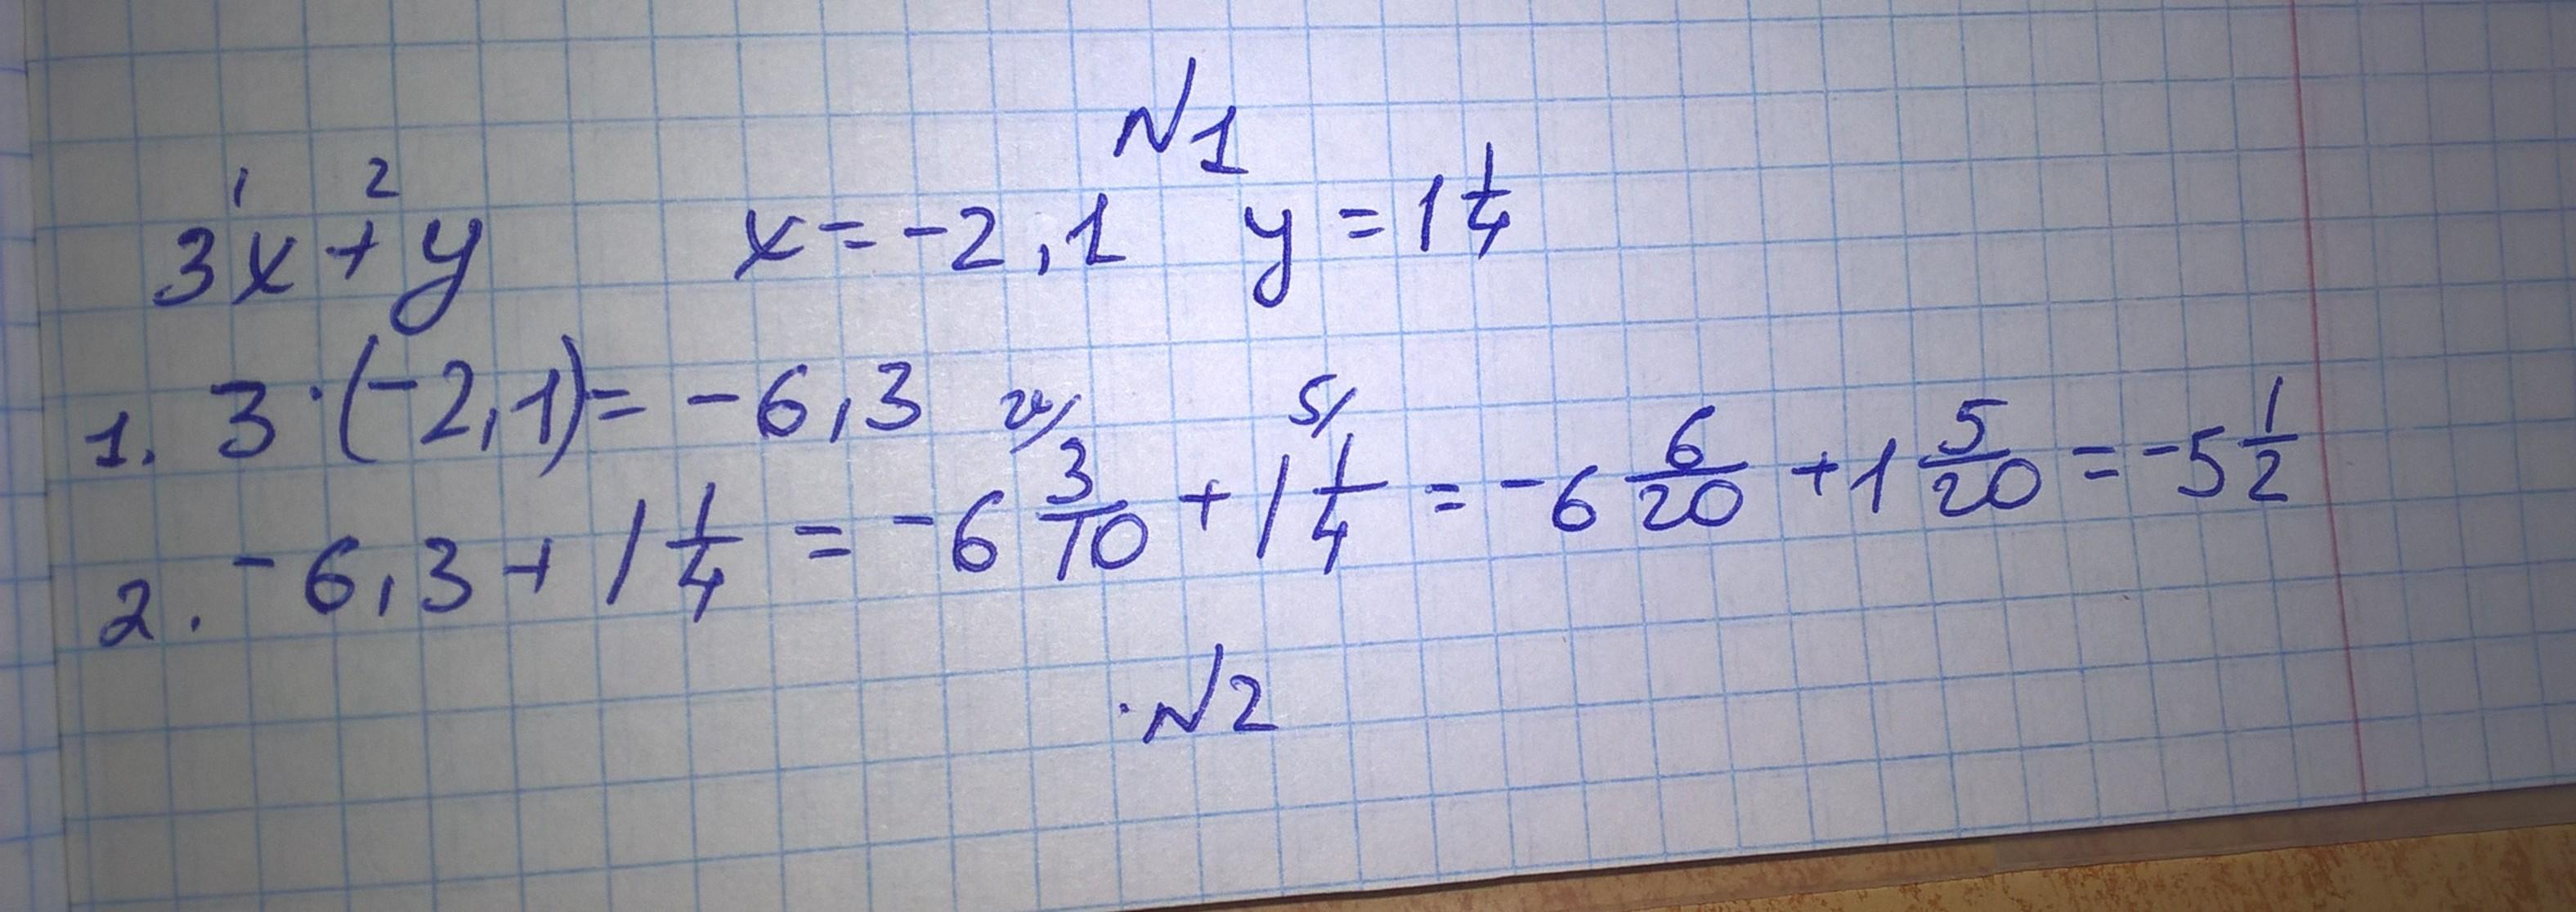 N1
3x+y x=-2,1 y=1 1/4
1 2
1. 3·(-2,1)=-6,3
2. -6,3+1 1/4=-6 3/10+1 1/4=-6 6/20+1 5/20=-5 1/2
2/ 5/
N2